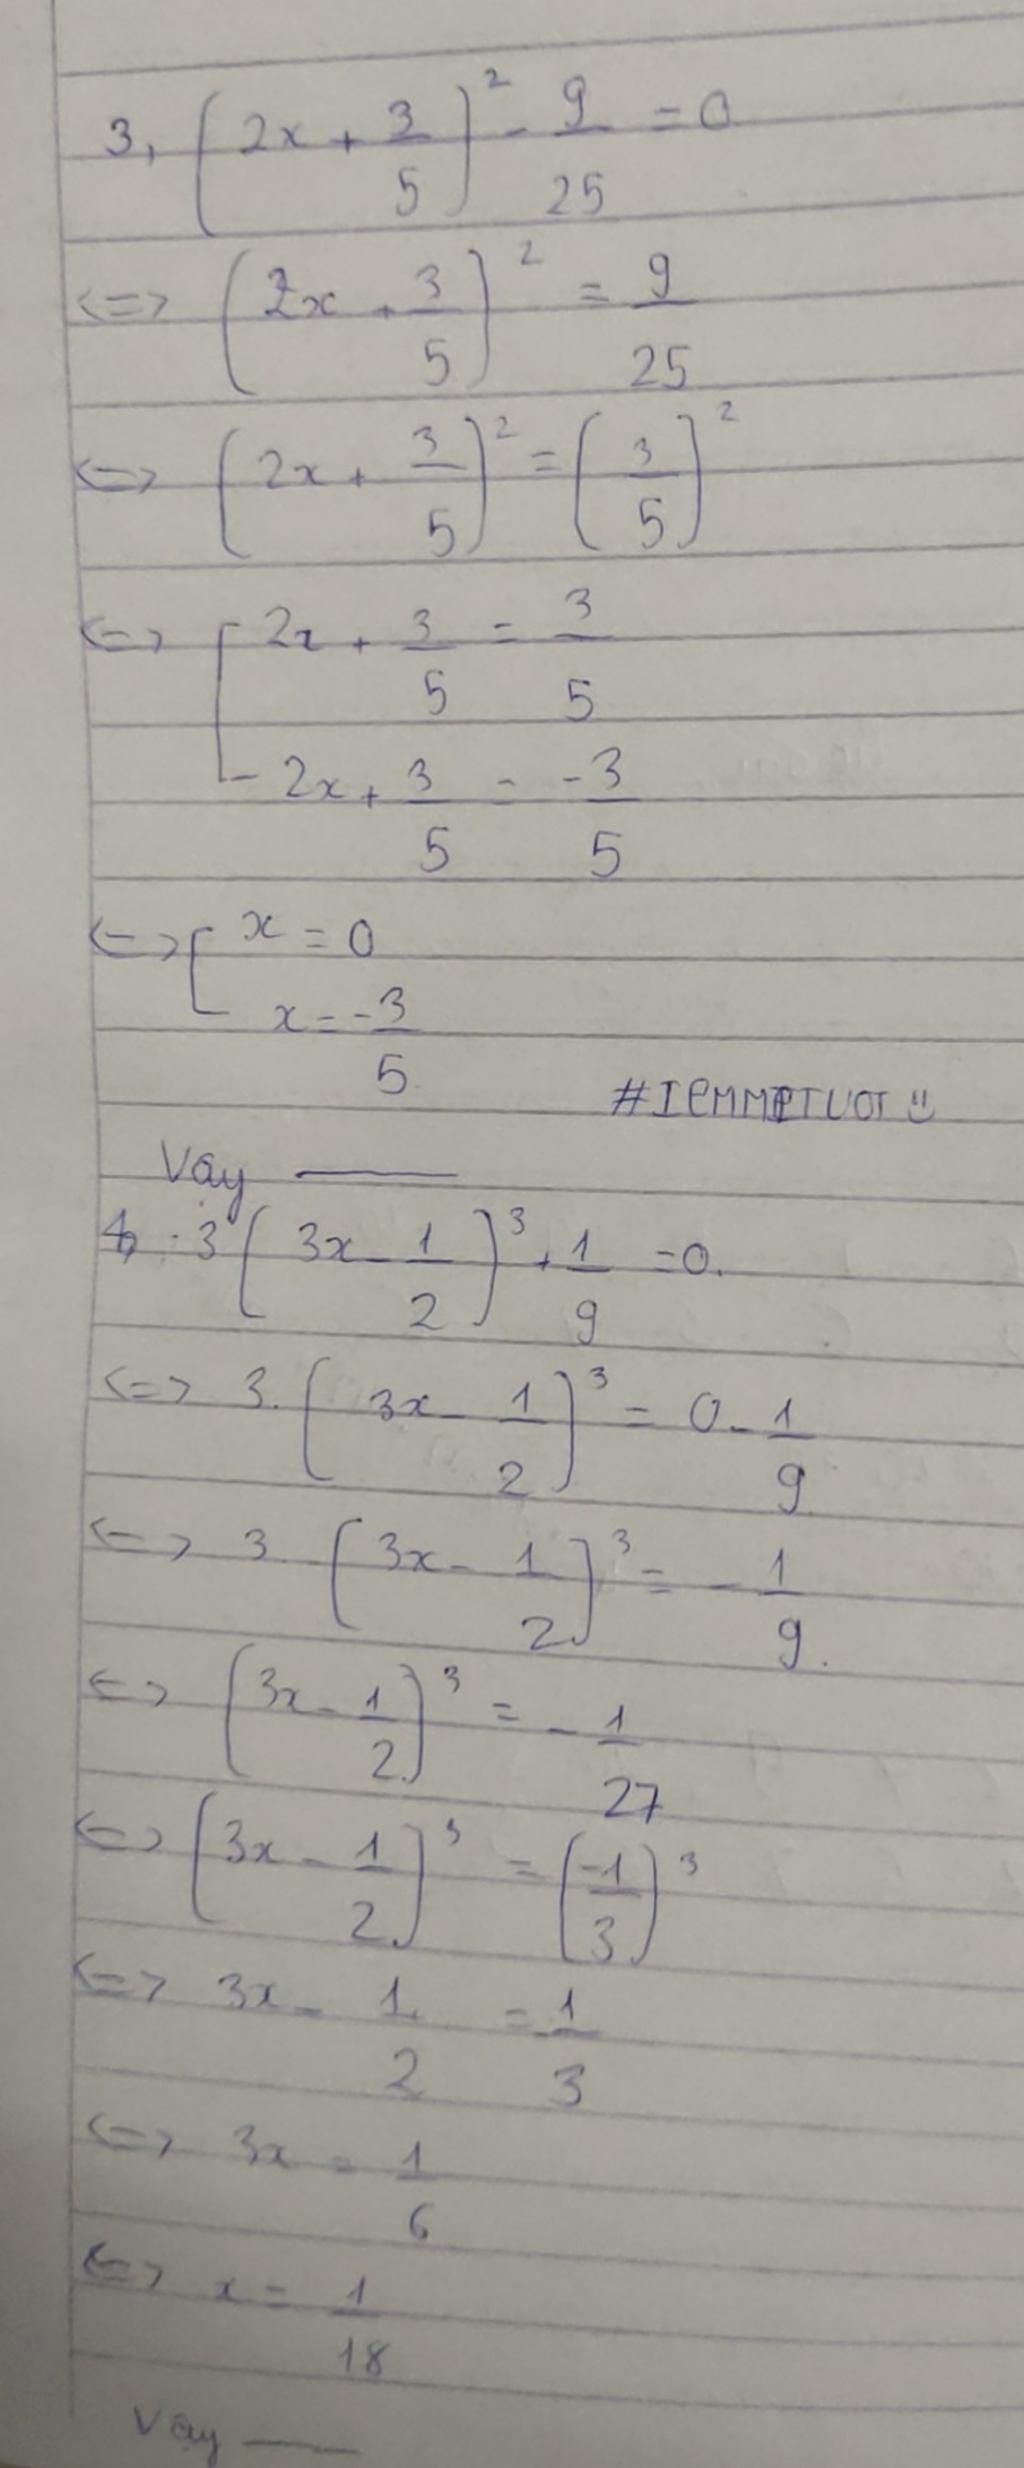 3, (2x + 3/5)² - 9/25 = 0
<=> (2x + 3/5)² = 9/25
<=> (2x + 3/5)² = (3/5)²
<=> [ 2x + 3/5 = 3/5
2x + 3/5 = -3/5
<=> [ x = 0
x = -3/5
#IEMMETUOT
Vậy ———
4, 3(3x - 1/2)³ + 1/9 = 0.
<=> 3.(3x - 1/2)³ = 0 - 1/9
<=> 3.(3x - 1/2)³ = -1/9.
<=> (3x - 1/2)³ = -1/27
<=> (3x - 1/2)³ = (-1/3)³
<=> 3x - 1/2 = -1/3
<=> 3x = 1/6
<=> x = 1/18
Vậy ———